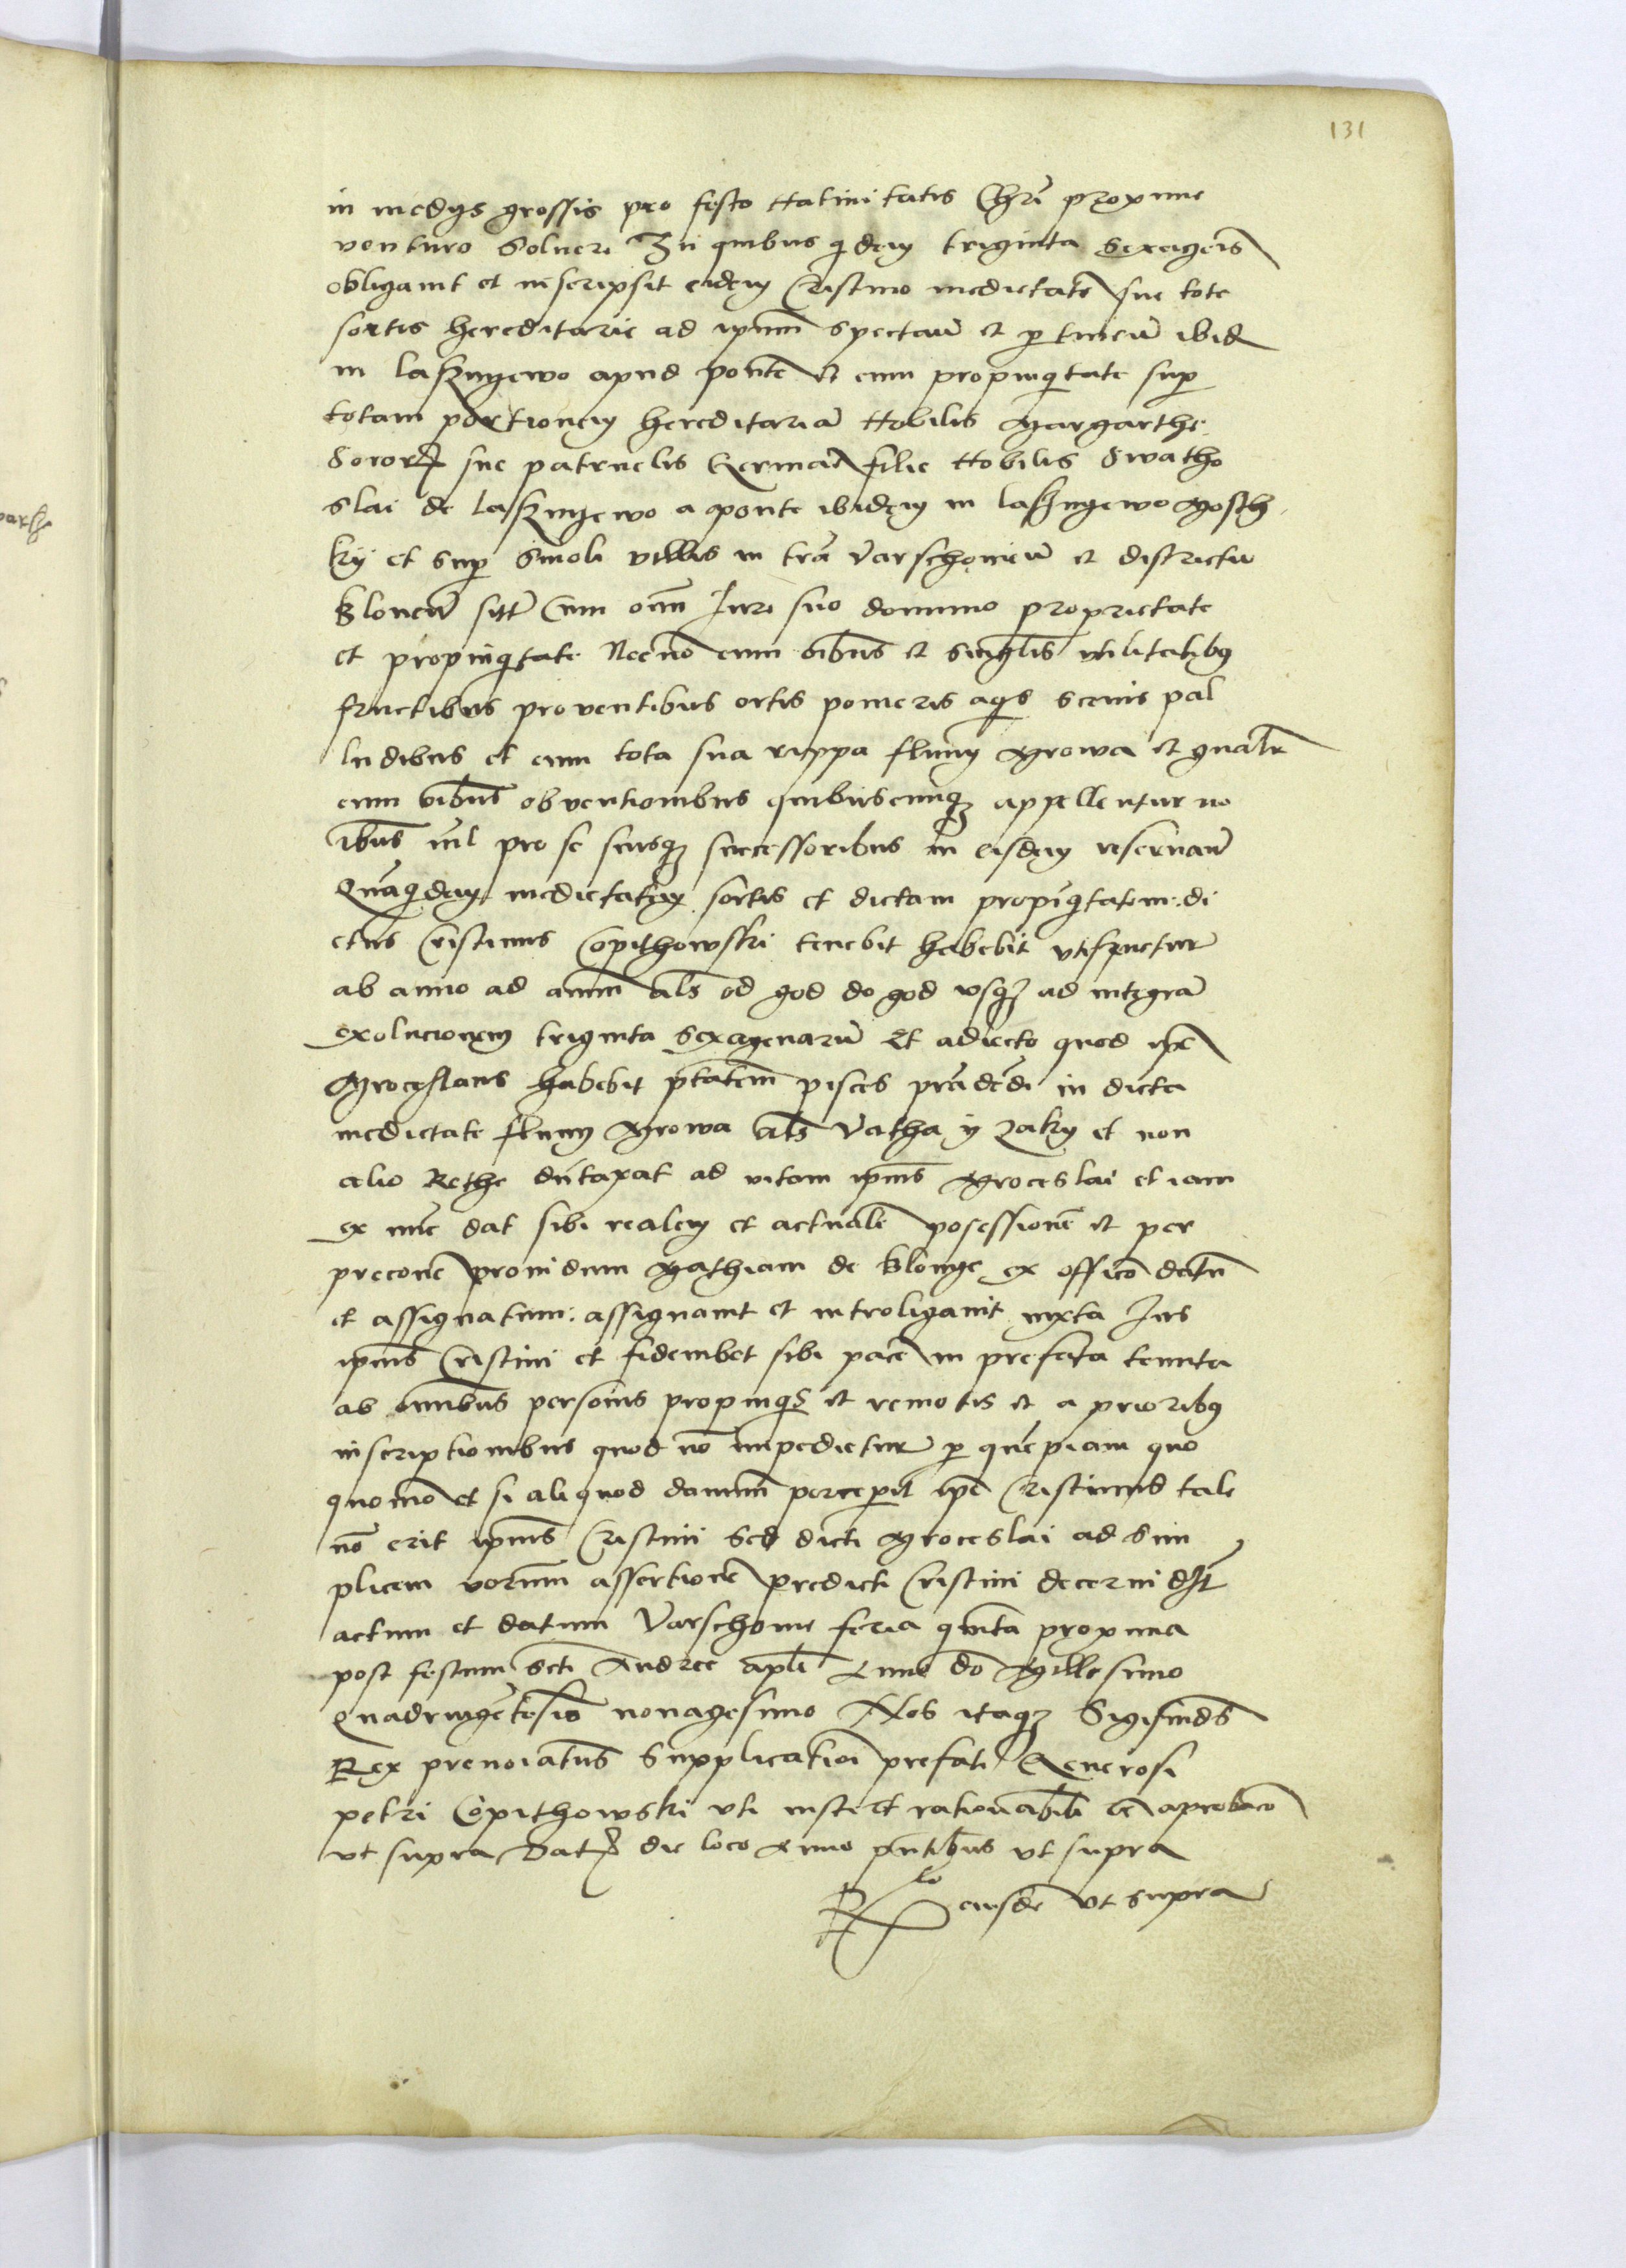 131
in medys grossis pro festo Natiuitatis Chri proxime
venturo Soluere In quibus qdem triginta Sexagenis
obligauit et inscripsit eidem Cristino medietatē sue tote
sortis hereditarie ad ipsum spectañ et ptineñ ibid
in laßzngewo apud pontē et cum propinqitate sup
totam portionem hereditariā Nobilis Margarthe
Sororis sue patruelis Germañ filie Nobilis Swatho
slai de laßzngewo a ponte ibidem in laßzngewo Mosth
ky et sup Smoli villis in trā Varschouieñ et districtu
Bloneñ sitt Cum omni Jure suo dominio proprietate
et propinqitate Necnō cum oibus et singlis vtilitatibus
fructibus prouentibus ortis pomeris aqis scenis pal
ludibus et cum tota sua rippa fluuy Mrowa et gnaltr
cum oibus obuentionibus quibuscunqz appellentur no
ibus nil pro se suisqz successoribus in eisdem reseruañ
Quāqdem medietatem sortis et dictam propīqitatem di
ctus Cristinus Copithowski tenebit habebit vtifruetur
ab anno ad annum als od god do god vsqz ad integrā
exolucionem triginta sexagenarū Et adiecto quod ipe
Mroczslaus habebit ptatem pisces prēdēdi in dicta
medietate fluuy Mrowa als Vatha y Zaky et non
alio Rethe dūtaxat ad vitam ipius Mroceslai et iam
ex nūc dat sibi realem et actualē posessionē et per
preconē prouidum Mathiam de Blonye ex officō datū
et assignatum assignauit et introligauit iuxta Jus
ipius Cristini et fideiubet sibi pacē in prefata tenuta
ab omnibus personis propinqs et remotis et a prioribus
inscriptionibus quod nō impedietur p quēpiam quo
quomō et si aliquod damnum perceperit ipē Cristinus tale
nō erit ipius Cristini Sed dicti Mroceslai ad sim
plicem verbum assertionē predicti Cristini decernēdū
actum et datum Varschouie feria quinta proxima
post festum Scti Andree apli Anno dō Millesimo
Quadringētesiō nonagesimo Nos itaqz Sigismūds
Rex prenoiatus Supplicationi prefati Generosi
petri Copithowski vti iuste et rationabili cē aprobacō
vt supra Dat die loco Anno pntibus vt supra
Rlo eiusdē vt supra